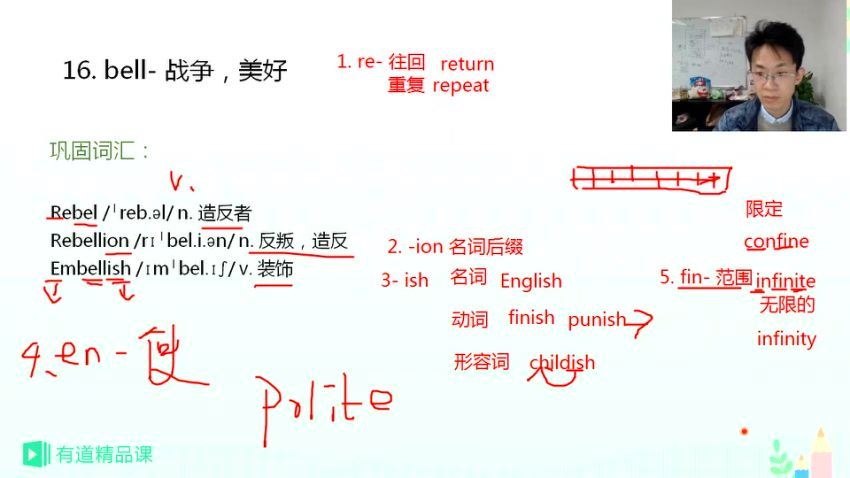 16. bell- 战争，美好
1. re- 往回 return
重复 repeat
巩固词汇：
v.
Rebel /ˈreb.əl/ n. 造反者
Rebellion /rɪˈbel.i.ən/ n. 反叛，造反
Embellish /ɪmˈbel.ɪʃ/ v. 装饰
2. -ion 名词后缀
3- ish 名词 English
动词 finish punish
形容词 childish
限定
confine
5. fin- 范围 infinite
无限的
infinity
4、en - 使
polite
有道精品课